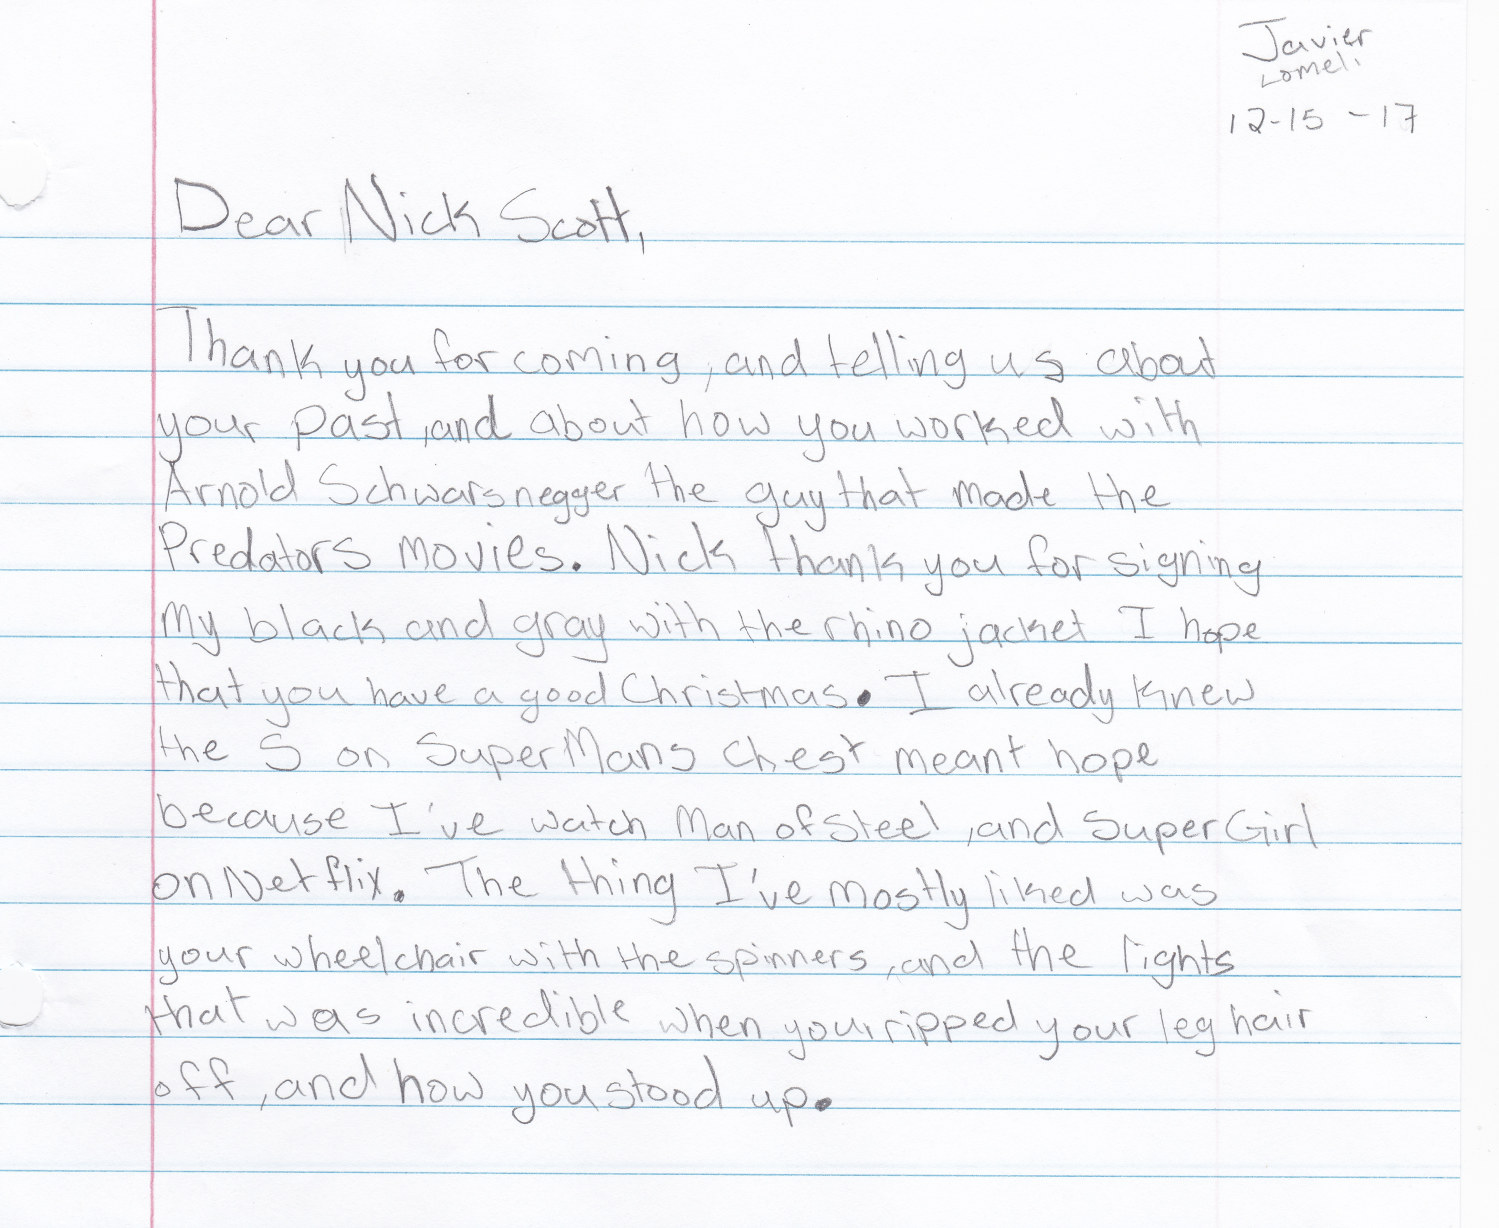 Javier
Lomeli
12-15-17
Dear Nick Scott,
Thank you for coming, and telling us about
your past, and about how you worked with
Arnold Schwarsnegger the guy that made the
Predators movies. Nick thank you for signing
my black and gray with the rhino jacket I hope
that you have a good Christmas. I already knew
the S on SuperMans chest meant hope
because I've watch Man of Steel, and SuperGirl
on Netflix. The thing I've mostly liked was
your wheelchair with the spinners, and the lights
that was incredible when your ripped your leg hair
off, and how you stood up.